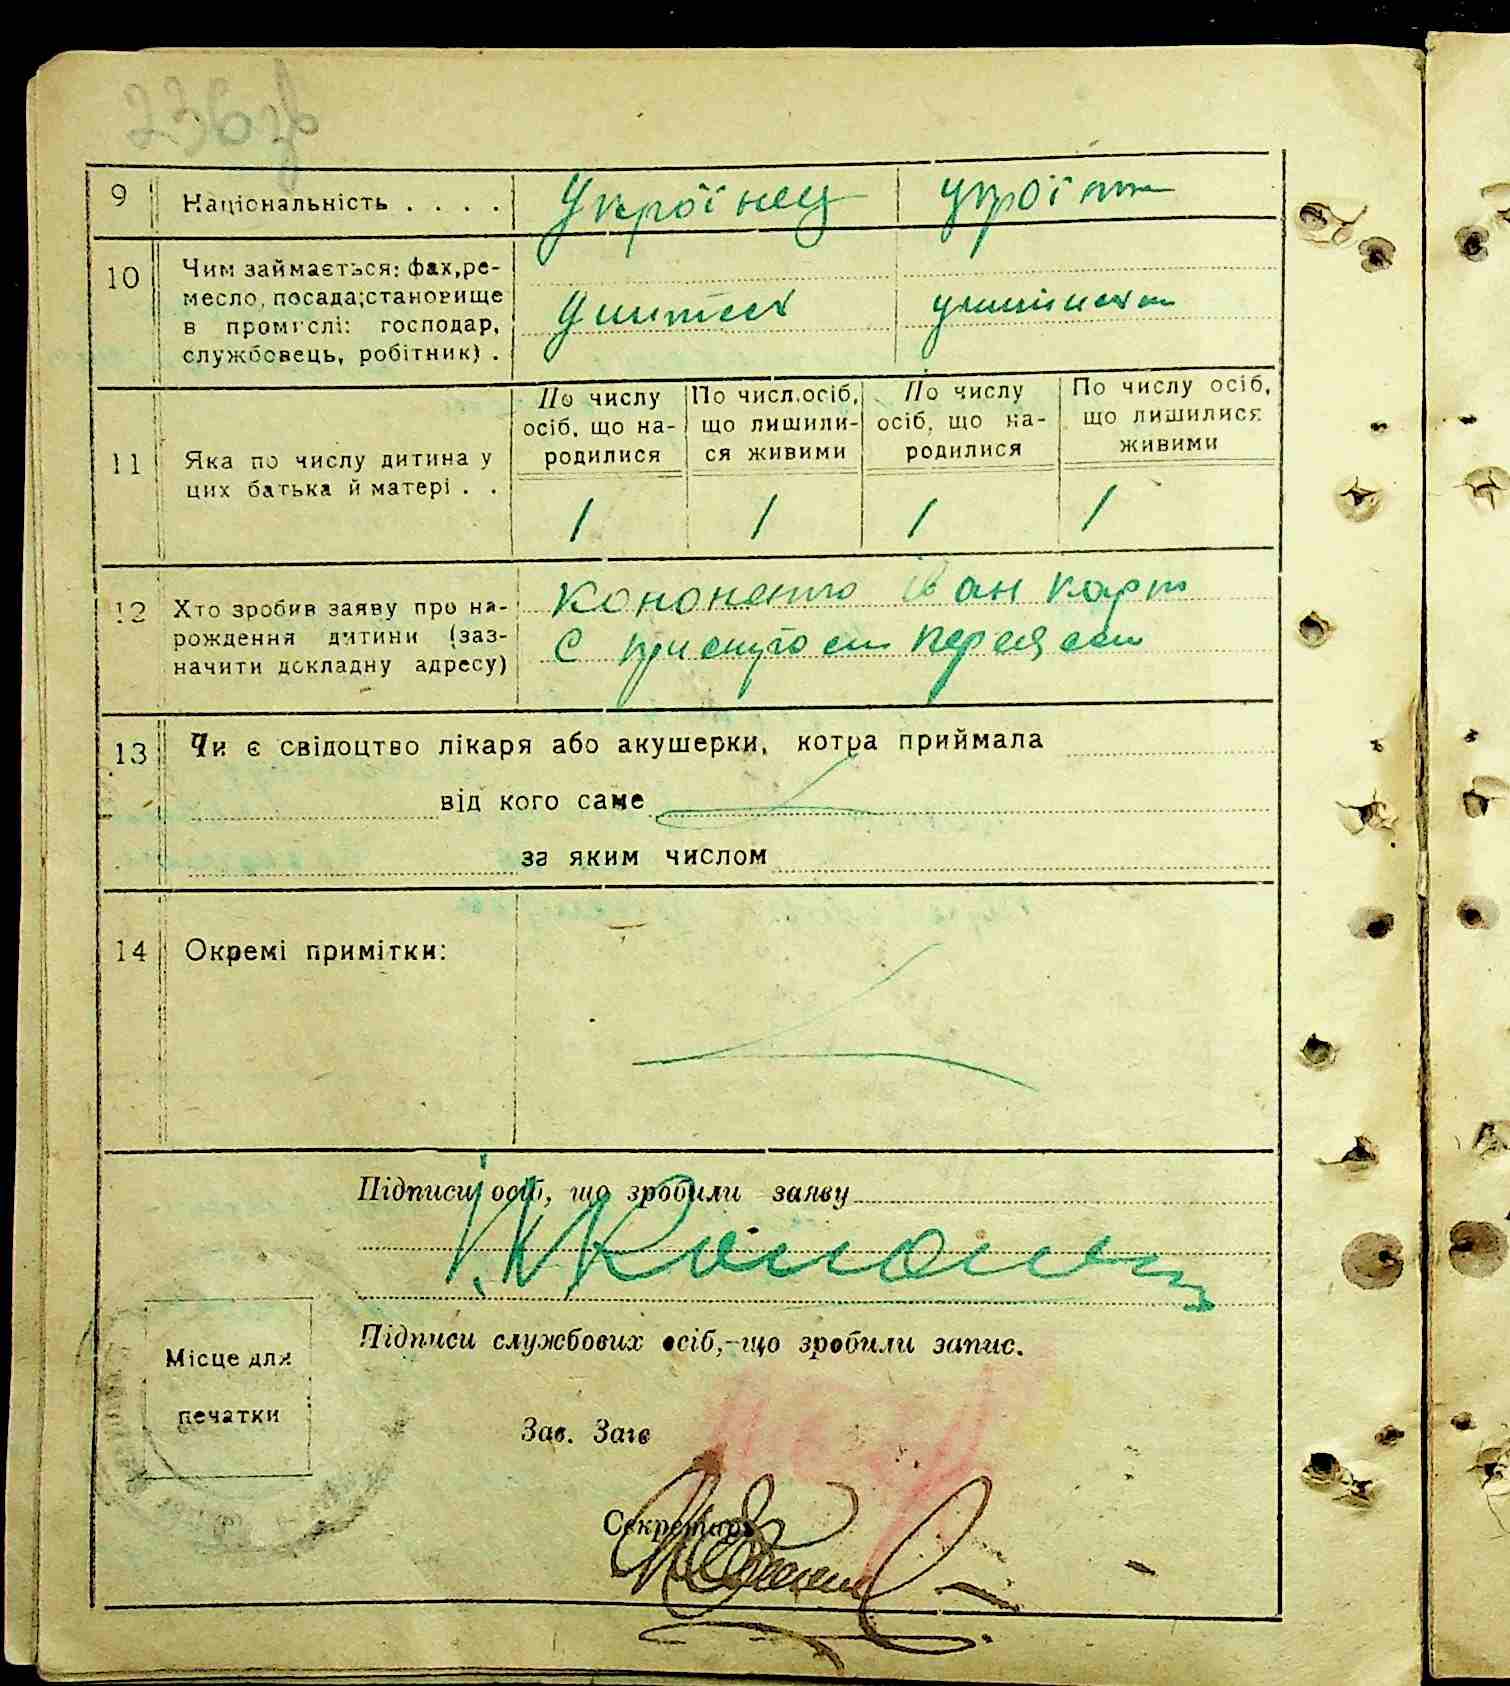 9 Національність . . . . Украінец
10 Чим займається: фах,ре-
месло, посада;становище
в промислі: господар,
службовець, робітник) .
Учитель учителька
По числу осіб, що на-родилися
По числ.осіб, що лишили-ся живими
По числу осіб, що на-родилися
По числу осіб, що лишилися живими
11 Яка по числу дитина у
цих батька й матері . .
1 1 1 1
12 Хто зробив заяву про на-
рождення дитини (заз-
начити докладну адресу)
Кононенко Іван Карп
С
13 Чи є свідоцтво лікаря або акушерки, котра приймала
від кого саме
за яким числом
14 Окремі примітки:
Підписи осіб, що зробили заяву
І.К Кононен
Підписи службових осіб,-що зробили запис.
Місце для
печатки
Зав. Загс
Секретарь